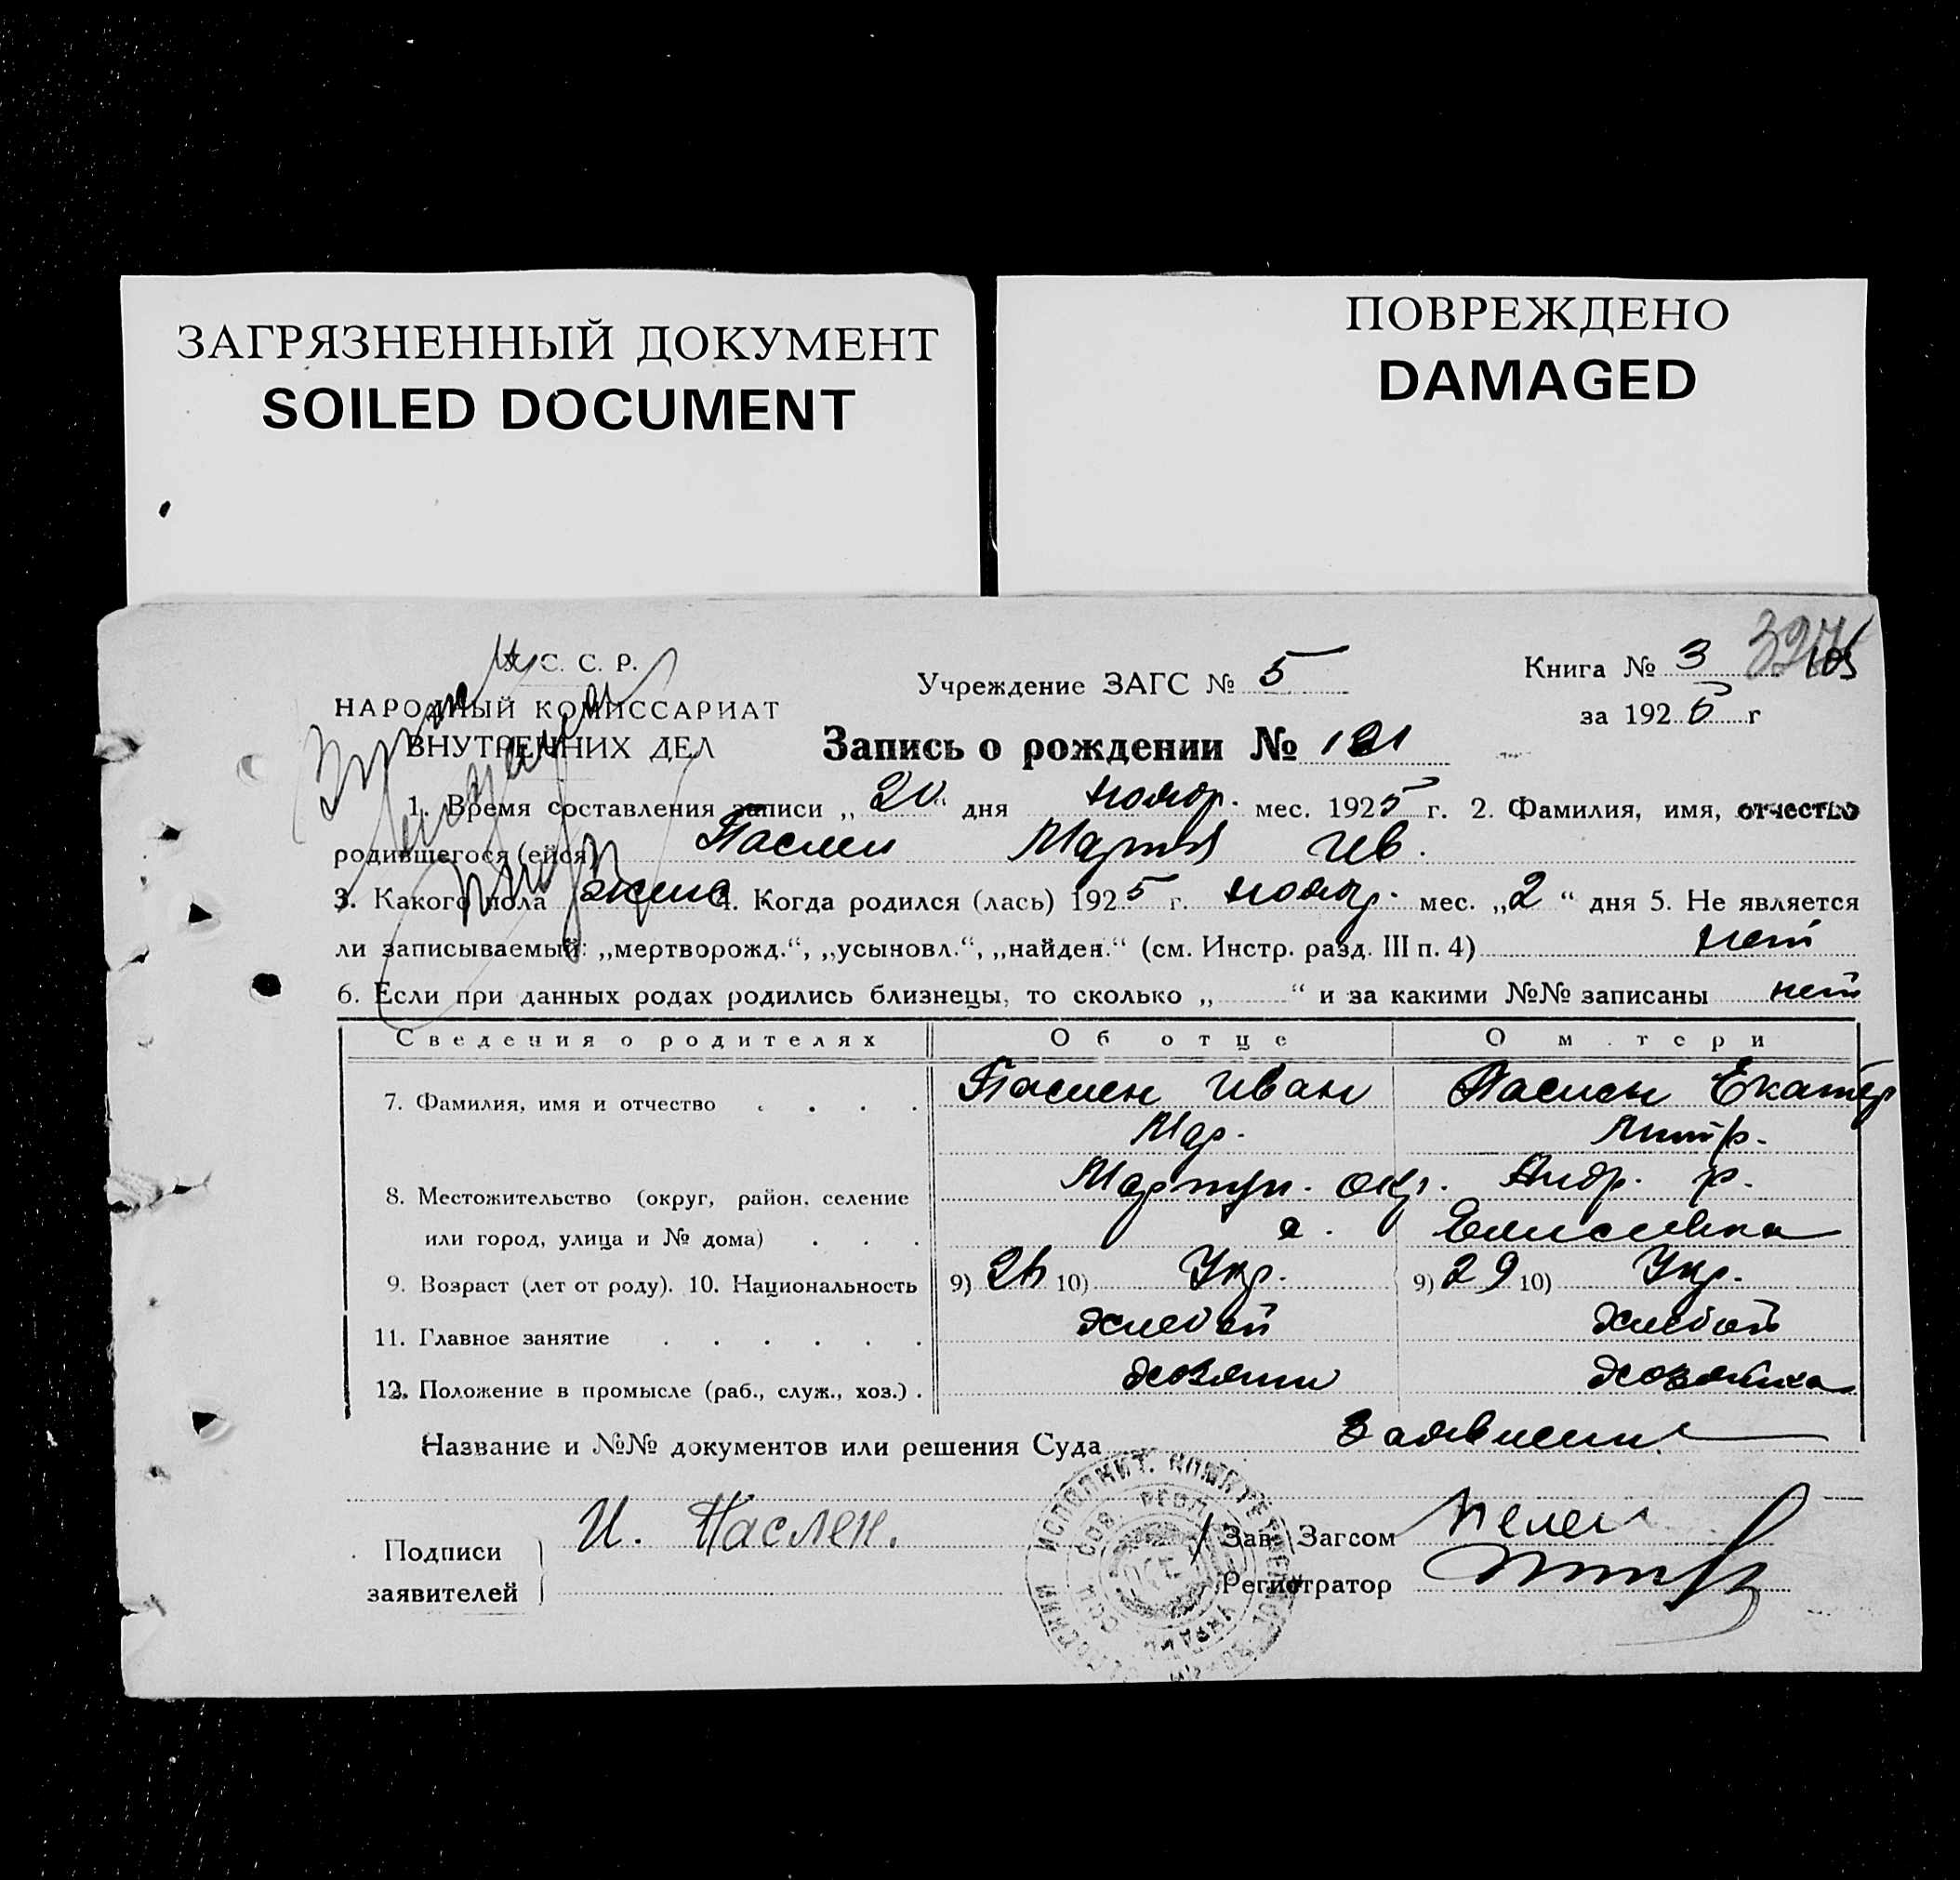 ЗАГРЯЗНЕННЫЙ ДОКУМЕНТ
SOILED DOCUMENT
ПОВРЕЖДЕНО
DAMAGED
У. С. С. Р.
НАРОДНЫЙ КОМИССАРИАТ
ВНУТРЕННИХ ДЕЛ
Учреждение ЗАГС № 5
Книга № 3
за 1925 г
Запись о рождении № 121
1. Время составления записи „20“ дня ноябр. мес. 1925 г. 2. Фамилия, имя, отчество
родившегося (ейся) Паслен Мария Ив.
3. Какого пола женс 4. Когда родился (лась) 1925 г. ноябр. мес. „2“ дня 5. Не является
ли записываемый: „мертворожд.“, „усыновл.“, „найден.“ (см. Инстр. разд. III п. 4) нет
6. Если при данных родах родились близнецы, то сколько „ “ и за какими №№ записаны нет
Сведения о родителях Об отце О м.тери
7. Фамилия, имя и отчество Паслен Иван Паслен Екатер
Мар. Дмитр.
8. Местожительство (округ, район, селение Мариуп. окр. Андр. р.
или город, улица и № дома) с. Елисеевка
9. Возраст (лет от роду). 10. Национальность 9) 26 10) Укр. 9) 29 10) Укр.
11. Главное занятие хлебоп хлебоп
12. Положение в промысле (раб., служ., хоз.) хозяин хозяйка
Название и №№ документов или решения Суда Заявление
Подписи
заявителей
И. Паслен.
Зав. Загсом
Регистратор